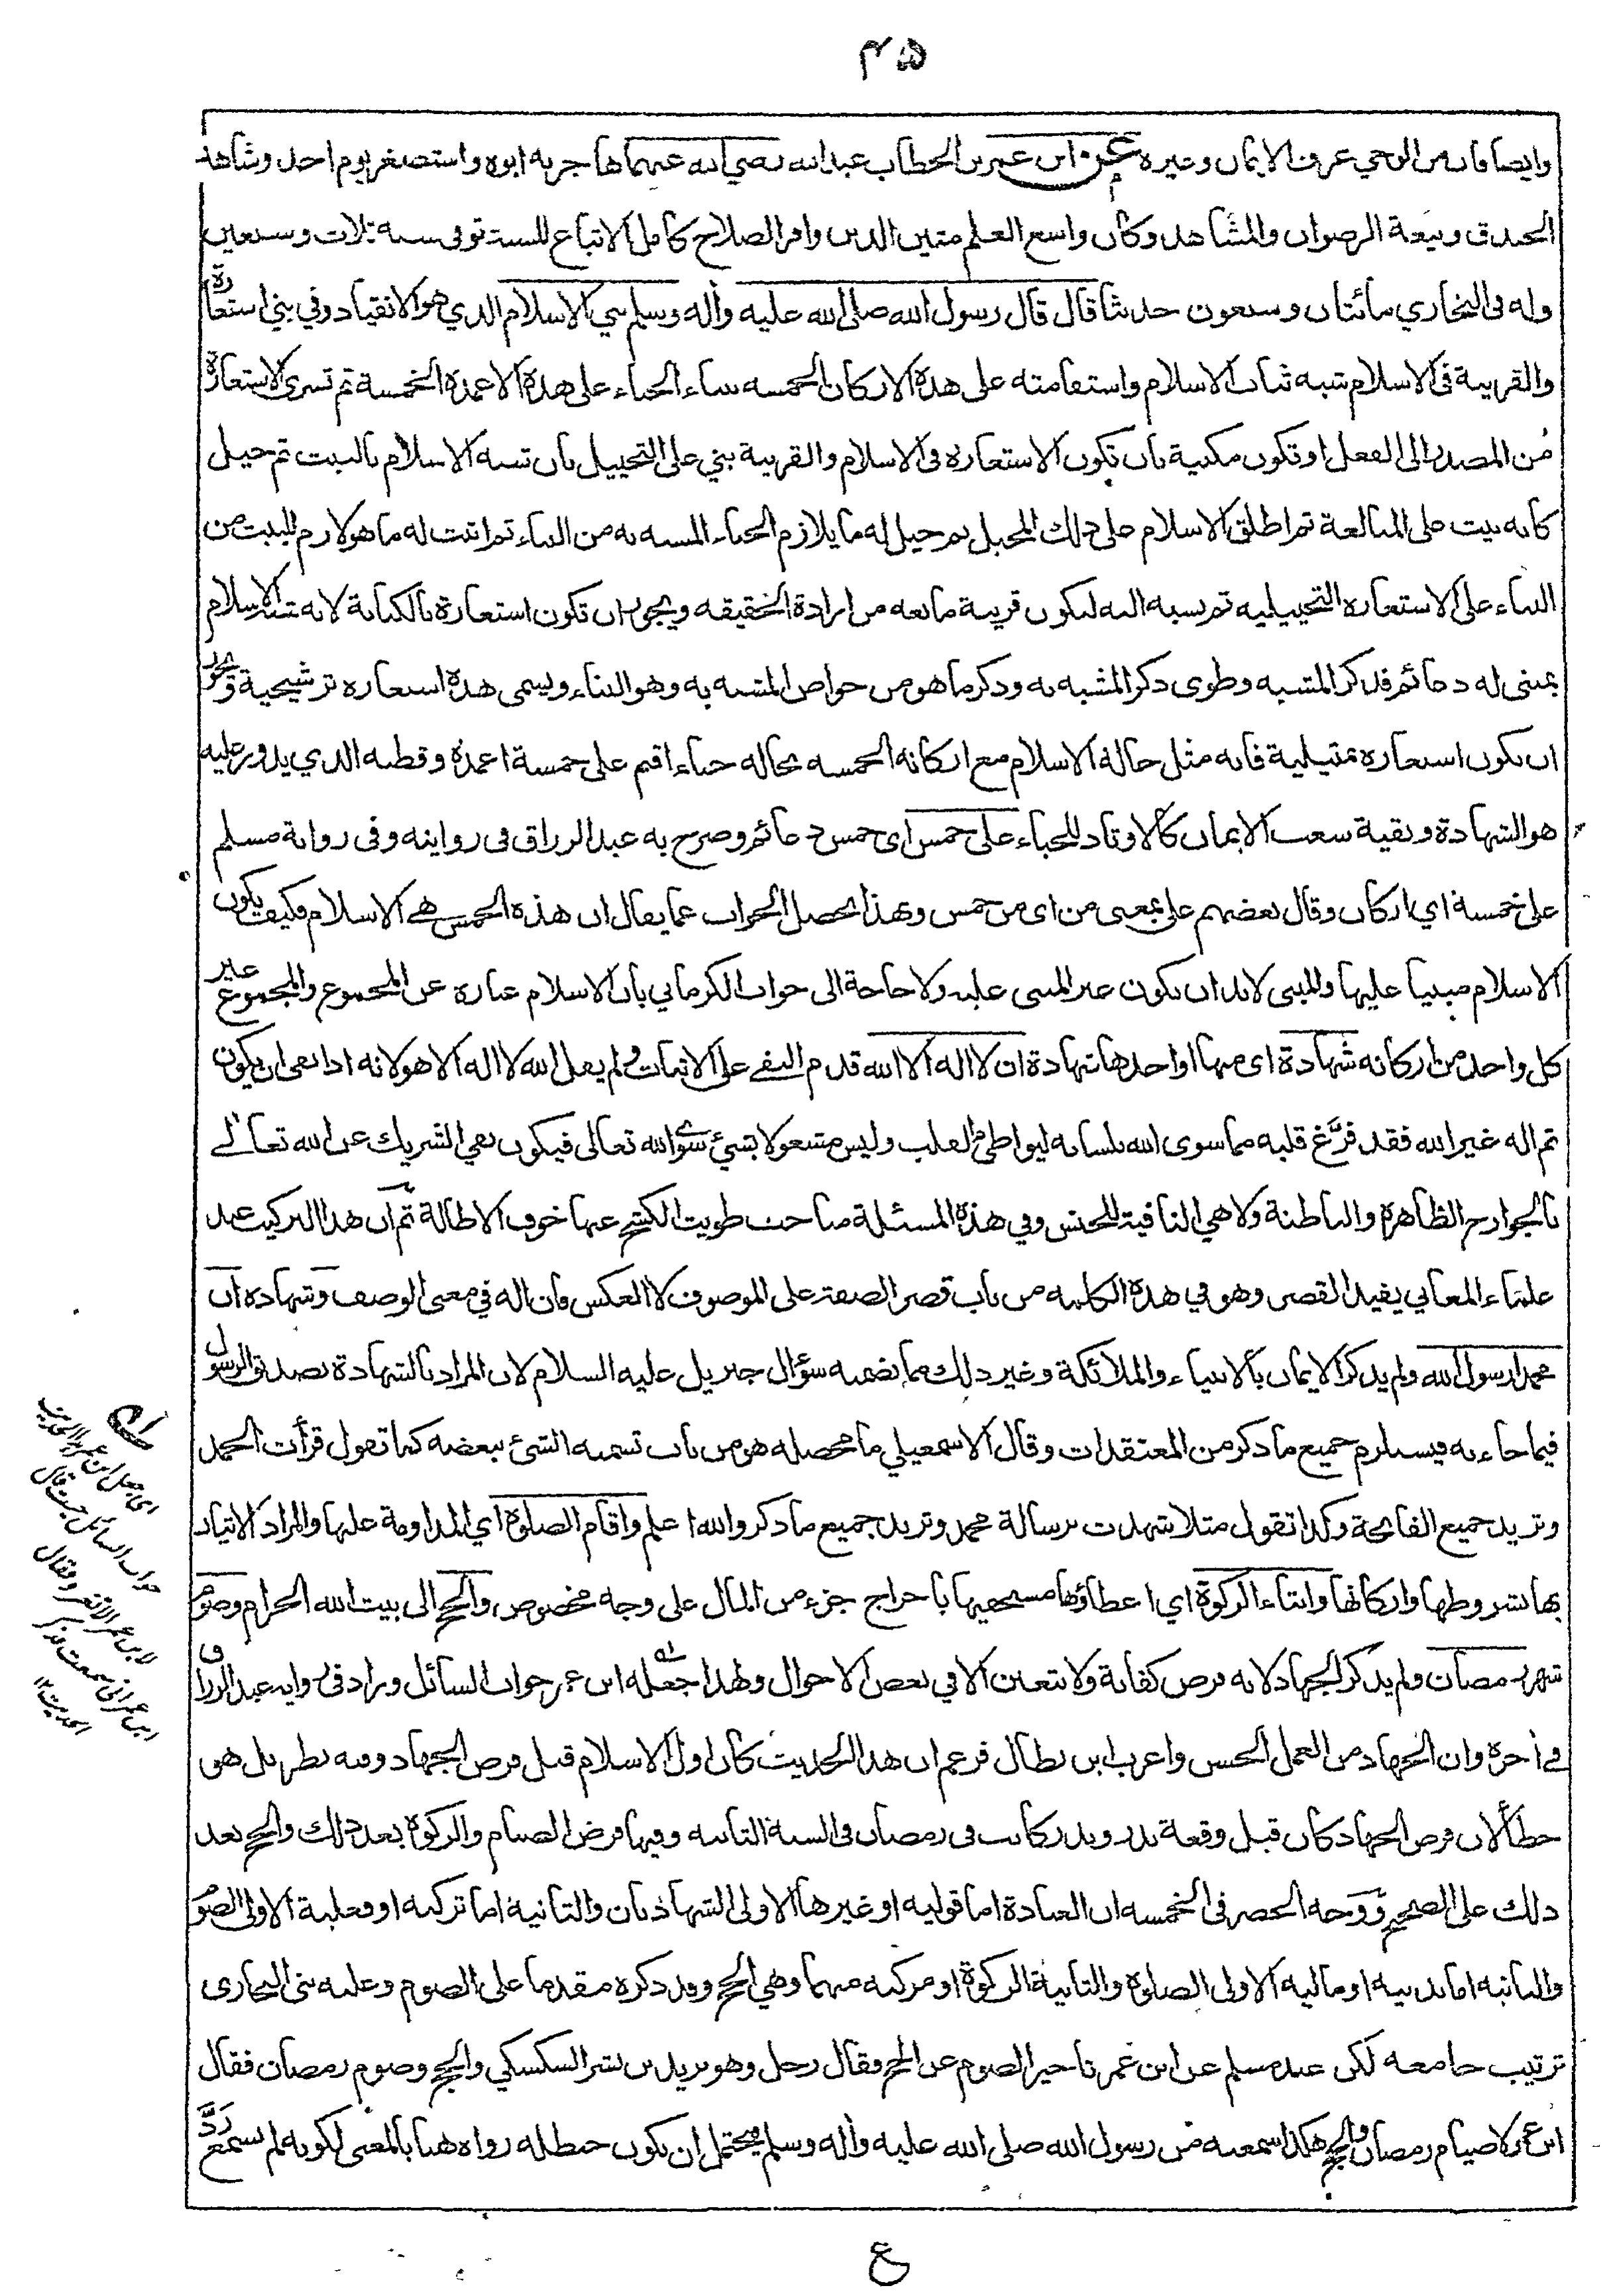 ٤٥
وايضا فان من الوحي عرف الايمان وغيره عن ابن عمر بن الخطاب عبد الله رضي الله عنهما هاجر به ابوه واستصغر يوم احد وشاهد
الخندق وبيعة الرضوان والمشاهد وكان واسع العلم متين الدين وافر الصلاح كامل الاتباع للسنة توفى سنة ثلاث وسبعين
وله فى البخاري مائتان وسبعون حديثا قال قال رسول الله صلى الله عليه وأله وسلم بني الاسلام الذي هو الانقياد وفي بني استعارة
والقرينة فى الاسلام شبه ثبات الاسلام واستقامته على هذه الاركان الخمسه ببناء الخباء على هذه الاعمدة الخمسة ثم تسرى الاستعارة
من المصدر الى الفعل او تكون مكنية بان تكون الاستعارة فى الاسلام والقرينة بني على التخييل بان تشبه الاسلام بالبيت ثم خيل
كانه بيت على المبالغة ثم اطلق الاسلام على ذلك المخيل ثم خيل له ما يلازم الخباء المشبه به من البناء ثم اثبت له ما هو لازم للبيت من
البناء على الاستعاره التخييليه ثم نسبه اليه ليكون قرينة مانعه من ارادة الحقيقه ويجوز ان تكون استعارة بالكناية لانه شبه الاسلام
بمبنى له دعائم فذكر المشبه وطوى ذكر المشبه به وذكر ما هو من خواص المشبه به وهو البناء ويسمى هذه استعاره ترشيحية ويجوز
ان تكون استعارة تمثيلية فانه مثل حالة الاسلام مع اركانه الخمسه بحاله خباء اقيم على خمسة اعمدة وقطبه الذي يدور عليه
هو الشهادة وبقية شعب الايمان كالاوتاد للخباء على خمس اى خمس دعائم وصرح به عبد الرزاق فى روايته وفى رواية مسلم
على خمسة اي اركان وقال بعضهم على بمعنى من اى من خمس وبهذا يحصل الجواب عما يقال ان هذه الخمس هى الاسلام فكيف يكون
الاسلام مبنيا عليها والمبنى لابد ان يكون غير المبنى عليه ولا حاجة الى جواب الكرماني بان الاسلام عبارة عن المجموع والمجموع غير
كل واحد من اركانه شهادة اى منها او احدها شهادة ان لا اله الا الله قدم النفى على الاثبات ولم يقل الله لا اله الا هو لانه اذا نفى ان يكون
ثم اله غير الله فقد فرّغ قلبه مما سوى الله بلسانه ليواطئ القلب وليس مشغولا بشئ سوى الله تعالى فيكون نفي الشريك عن الله تعالى
بالجوارح الظاهرة والباطنة ولا هي النافية للجنس وفي هذه المسئلة مباحث طويت الكشح عنها خوف الاطالة ثم ان هذا التركيب عند
علماء المعاني يفيد القصر وهو في هذه الكلمه من باب قصر الصفة على الموصوف لا العكس فان اله في معنى الوصف وشهادة ان
محمدا رسول الله ولم يذكر الايمان بالانبياء والملائكة وغير ذلك مما تضمنه سؤال جبريل عليه السلام لان المراد بالشهادة تصديق الرسول
فيما جاء به فيستلزم جميع ما ذكر من المعتقدات وقال الاسمعيلي ما محصله هو من باب تسميه الشئ ببعضه كما تقول قرأت الحمد
وتريد جميع الفاتحة وكذا تقول مثلا شهدت برسالة محمد وتريد جميع ما ذكر والله اعلم واقام الصلوة اي المداومة عليها والمراد الاتيان
بها بشروطها واركانها وايتاء الزكوة اي اعطاؤها مستحقيها باخراج جزء من المال على وجه مخصوص والحج الى بيت الله الحرام وصوم
شهر رمضان ولم يذكر الجهاد لانه فرض كفاية ولا يتعين الا في بعض الاحوال ولهذا جعله ابن عمر جواب السائل وزاد فى رواية عبد الرزاق
في أخره وان الجهاد من العمل الحسن واغرب ابن بطال فزعم ان هذا الحديث كان اول الاسلام قبل فرض الجهاد وفيه نظر بل هى
خطأ لان فرض الجهاد كان قبل وقعة بدر وبدر كانت فى رمضان فى السنة الثانيه وفيها فرض الصيام والزكوة بعد ذلك والحج بعد
ذلك على الصحيح ووجه الحصر فى الخمسه ان العبادة اما قوليه او غيرها الاولى الشهادتان والثانية اما تركيه او فعلية الاولى الصوم
والثانيه اما بدنيه او ماليه الاولى الصلوة والثانية الزكوة او مركبه منهما وهي الحج وقد ذكره مقدما على الصوم وعليه بنى البخارى
ترتيب جامعه لكن عند مسلم عن ابن عمر تاخير الصوم عن الحج فقال رجل وهو يزيد بن بشر السكسكي والحج وصوم رمضان فقال
ابن عمر لا صيام رمضان والحج هكذا سمعته من رسول الله صلى الله عليه وأله وسلم فيحتمل ان يكون حنظله رواه هنا بالمعنى لكونه لم يسمع ردّ
اى جعل ابن عمر هذا الحديث
جواب السائل حيث قال
لابن عمر الا تغزو فقال
ابن عمر انى سمعت فذكر
الحديث ١٢
ع